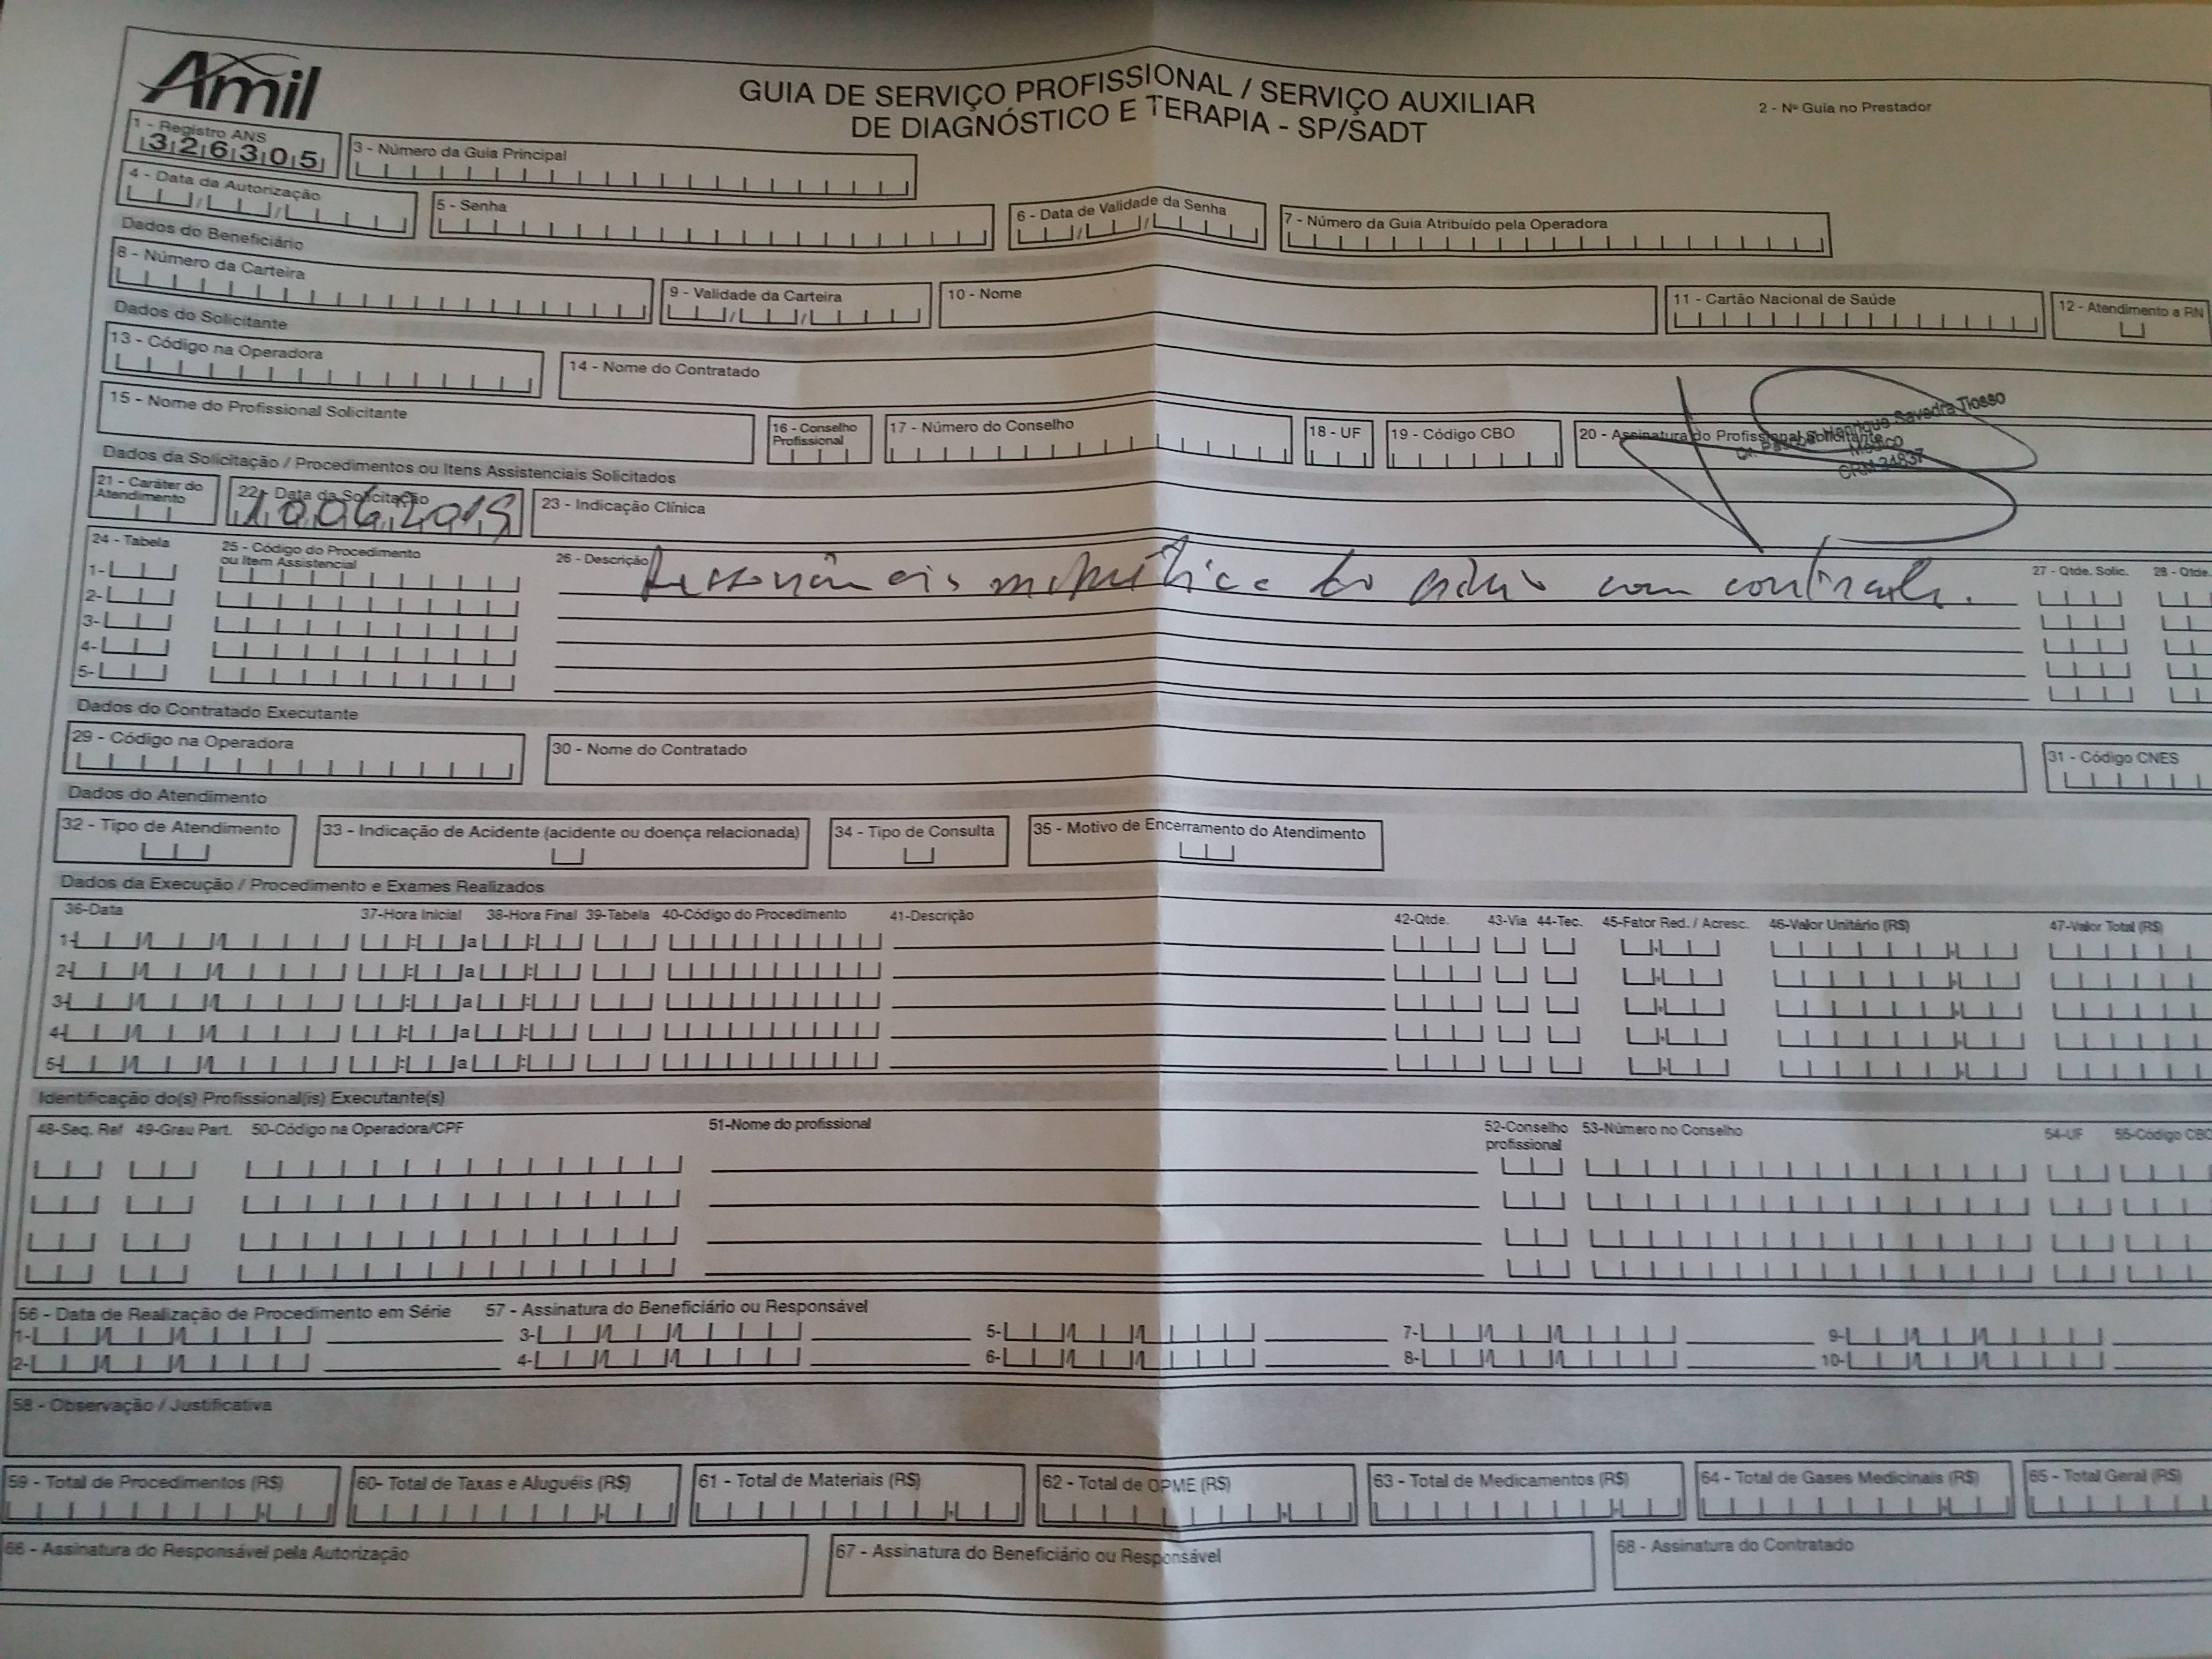 Amil
GUIA DE SERVIÇO PROFISSIONAL / SERVIÇO AUXILIAR
DE DIAGNÓSTICO E TERAPIA - SP/SADT
2 - Nº Guia no Prestador
1 - Registro ANS
326305
3 - Número da Guia Principal
4 - Data da Autorização
5 - Senha
6 - Data de Validade da Senha
7 - Número da Guia Atribuído pela Operadora
Dados do Beneficiário
8 - Número da Carteira
9 - Validade da Carteira
10 - Nome
11 - Cartão Nacional de Saúde
12 - Atendimento a RN
Dados do Solicitante
13 - Código na Operadora
14 - Nome do Contratado
15 - Nome do Profissional Solicitante
16 - Conselho Profissional
17 - Número do Conselho
18 - UF
19 - Código CBO
20 - Assinatura do Profissional Solicitante
Henrique Savedra Tiosso
Médico
Dados da Solicitação / Procedimentos ou Itens Assistenciais Solicitados
21 - Caráter do Atendimento
22 - Data da Solicitação
23 - Indicação Clínica
24 - Tabela
25 - Código do Procedimento ou Item Assistencial
26 - Descrição
27 - Qtde. Solic.
28 - Qtde.
1-
2-
3-
4-
5-
Dados do Contratado Executante
29 - Código na Operadora
30 - Nome do Contratado
31 - Código CNES
Dados do Atendimento
32 - Tipo de Atendimento
33 - Indicação de Acidente (acidente ou doença relacionada)
34 - Tipo de Consulta
35 - Motivo de Encerramento do Atendimento
Dados da Execução / Procedimento e Exames Realizados
36-Data
37-Hora Inicial
38-Hora Final
39-Tabela
40-Código do Procedimento
41-Descrição
42-Qtde.
43-Via
44-Tec.
45-Fator Red. / Acresc.
46-Valor Unitário (R$)
47-Valor Total (R$)
1- a
2- a
3- a
4- a
5- a
Identificação do(s) Profissional(is) Executante(s)
48-Seq. Ref
49-Grau Part.
50-Código na Operadora/CPF
51-Nome do profissional
52-Conselho profissional
53-Número no Conselho
54-UF
55-Código CBO
56 - Data de Realização de Procedimento em Série
57 - Assinatura do Beneficiário ou Responsável
1- 3- 5- 7- 9-
2- 4- 6- 8- 10-
58 - Observação / Justificativa
59 - Total de Procedimentos (R$)
60- Total de Taxas e Aluguéis (R$)
61 - Total de Materiais (R$)
62 - Total de OPME (R$)
63 - Total de Medicamentos (R$)
64 - Total de Gases Medicinais (R$)
65 - Total Geral (R$)
66 - Assinatura do Responsável pela Autorização
67 - Assinatura do Beneficiário ou Responsável
68 - Assinatura do Contratado